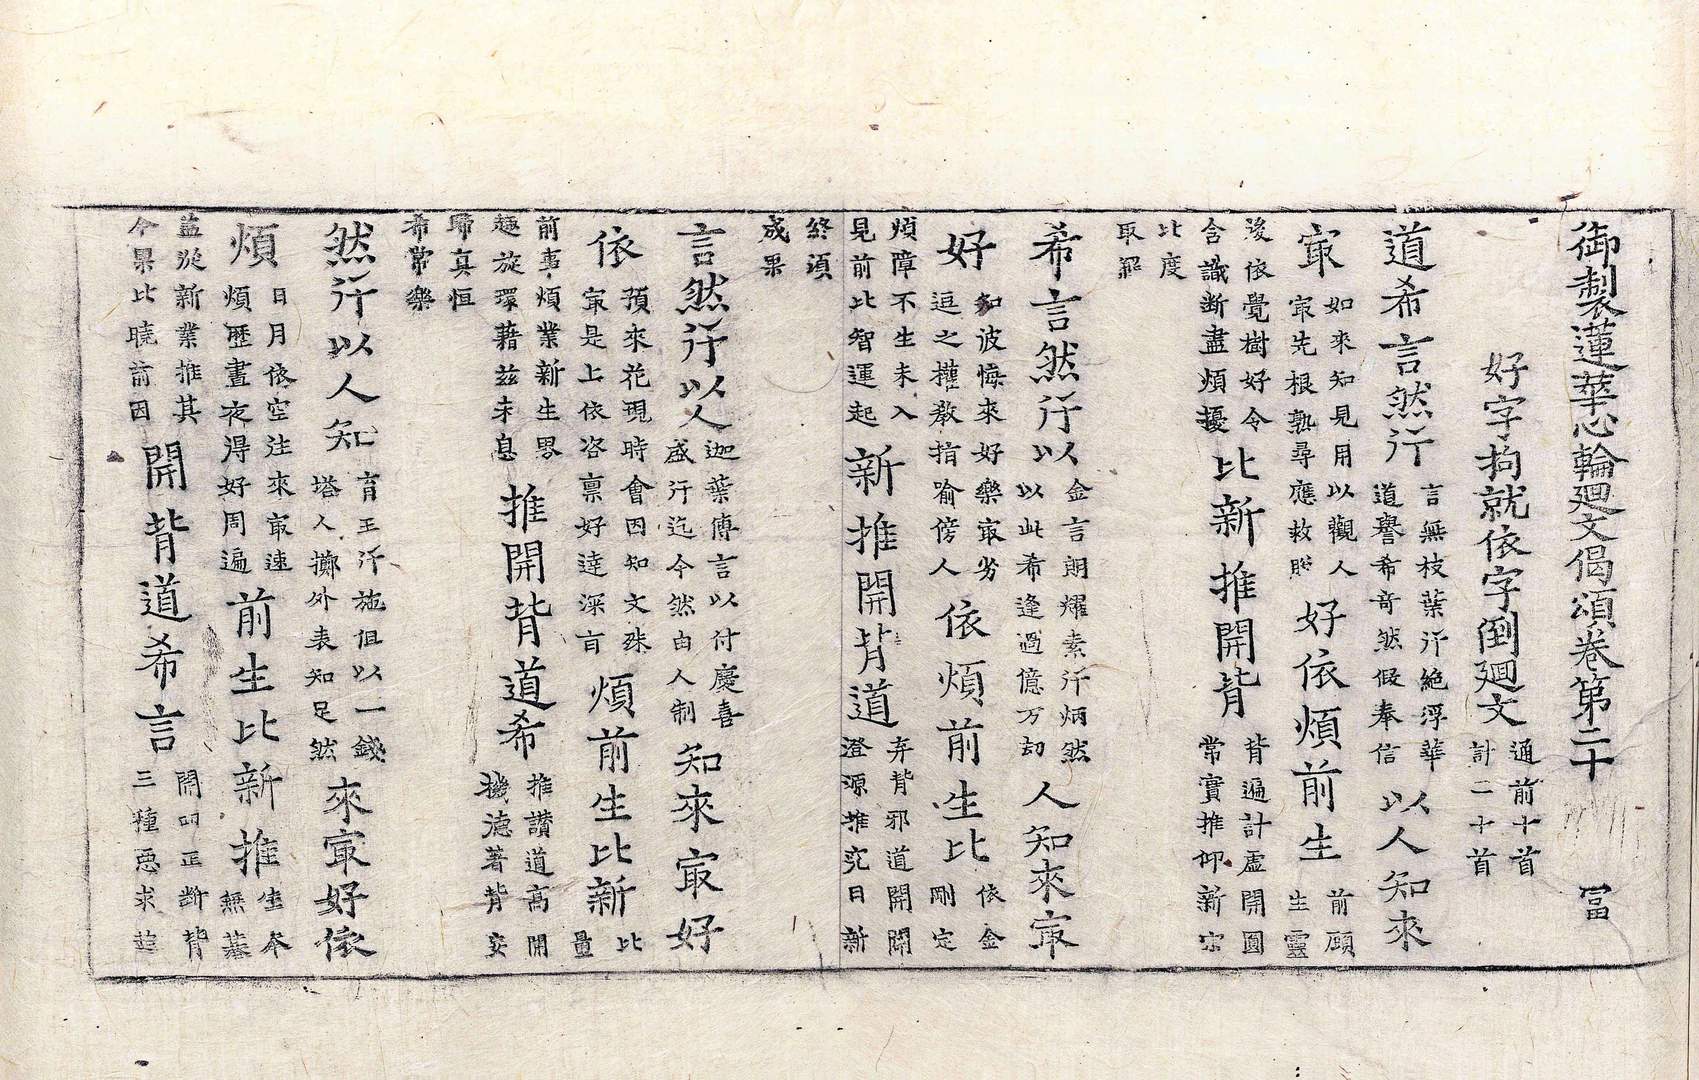 御製蓮華心輪廻文偈頌卷第二十 冨
好字拘就依字倒廻文 通前十首 計二十首
道希言然行 言無枝葉行絶浮華 道譽希奇然假奉信 以人知來
㝡 如來知見用以觀人 㝡先根熟尋應救 好依煩前生 前願 生靈
後依覺樹好令 含識断盡煩擾 比新推開背 背遍計虛開圓 常實推仰新宗
比度 取羅
希言然行以 金言朗耀素行炳然 以此希逢過億万劫 人知來㝡
好 知彼悔來好樂㝡劣 逗之權教指喻傍人 依煩前生比 依金 剛定
煩障不生未入 見前比智運起 新推開背道 弃背邪道開闢 澄源推究日新
終須 成果
言然行以人 迦葉傳言以付慶喜 盛行迄今然由人制 知來㝡好
依 預來花現時會因知文殊 㝡是上依咨禀好達深盲 煩前生比新 比 量
前事煩業新生 趣旋環藉茲未息 推開背道希 推讃道高開 機德著背妄
歸真恒 希常樂
然行以人知 育王行施但以一錢 塔人擲外表知足然 來㝡好依
煩 日月依空注來㝡速 煩歷晝夜得好周遍 前生比新推 生 無
從新業推其 今果比曉前因 開背道希言 開叩正断背 三種惡求並